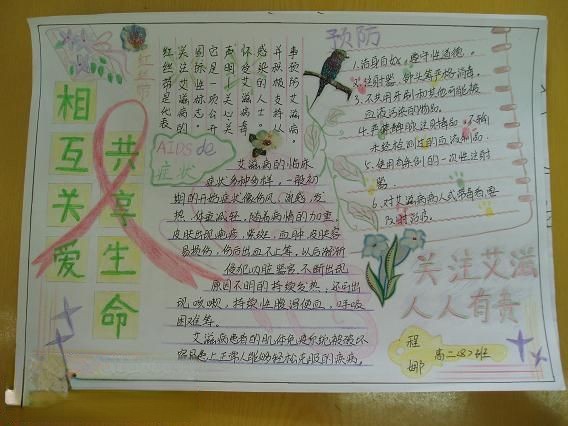 相互关爱
共享生命
红丝带
红丝带是代表
关注艾滋病的
国际性标志
它是一项公开
声明关心
怀艾滋病毒
感染的人士。
并积极支持
事预防艾滋病。
AIDS de
症状
艾滋病的临床
症状多种多样，一般初
期的开始症状像伤风、流感、发
热、体重减轻、随着病情的加重。
皮肤出现疱疹、紫斑、血肿，皮肤容
易损伤，伤后出血不止等，以后渐渐
侵犯内脏器官不断出现
原因不明的持续发热，还可出
现咳嗽，持续性腹泻便血、呼吸
困难等。
艾滋病患者的肌体免疫系统被破坏
容易患上正常人能够轻松克服的疾病。
预防
1.洁身自好、遵守性道德。
2.注射器、针头等严格消毒。
3.不共用牙刷和其他可能被
血液污染的物品。
4.严禁静脉注射毒品、不输
未经检测过的血液制品。
5.使用自毁剂的一次性注射
器。
6.对艾滋病病人或带毒者密
关注艾滋
人人有责
程娜
高二〈8〉班